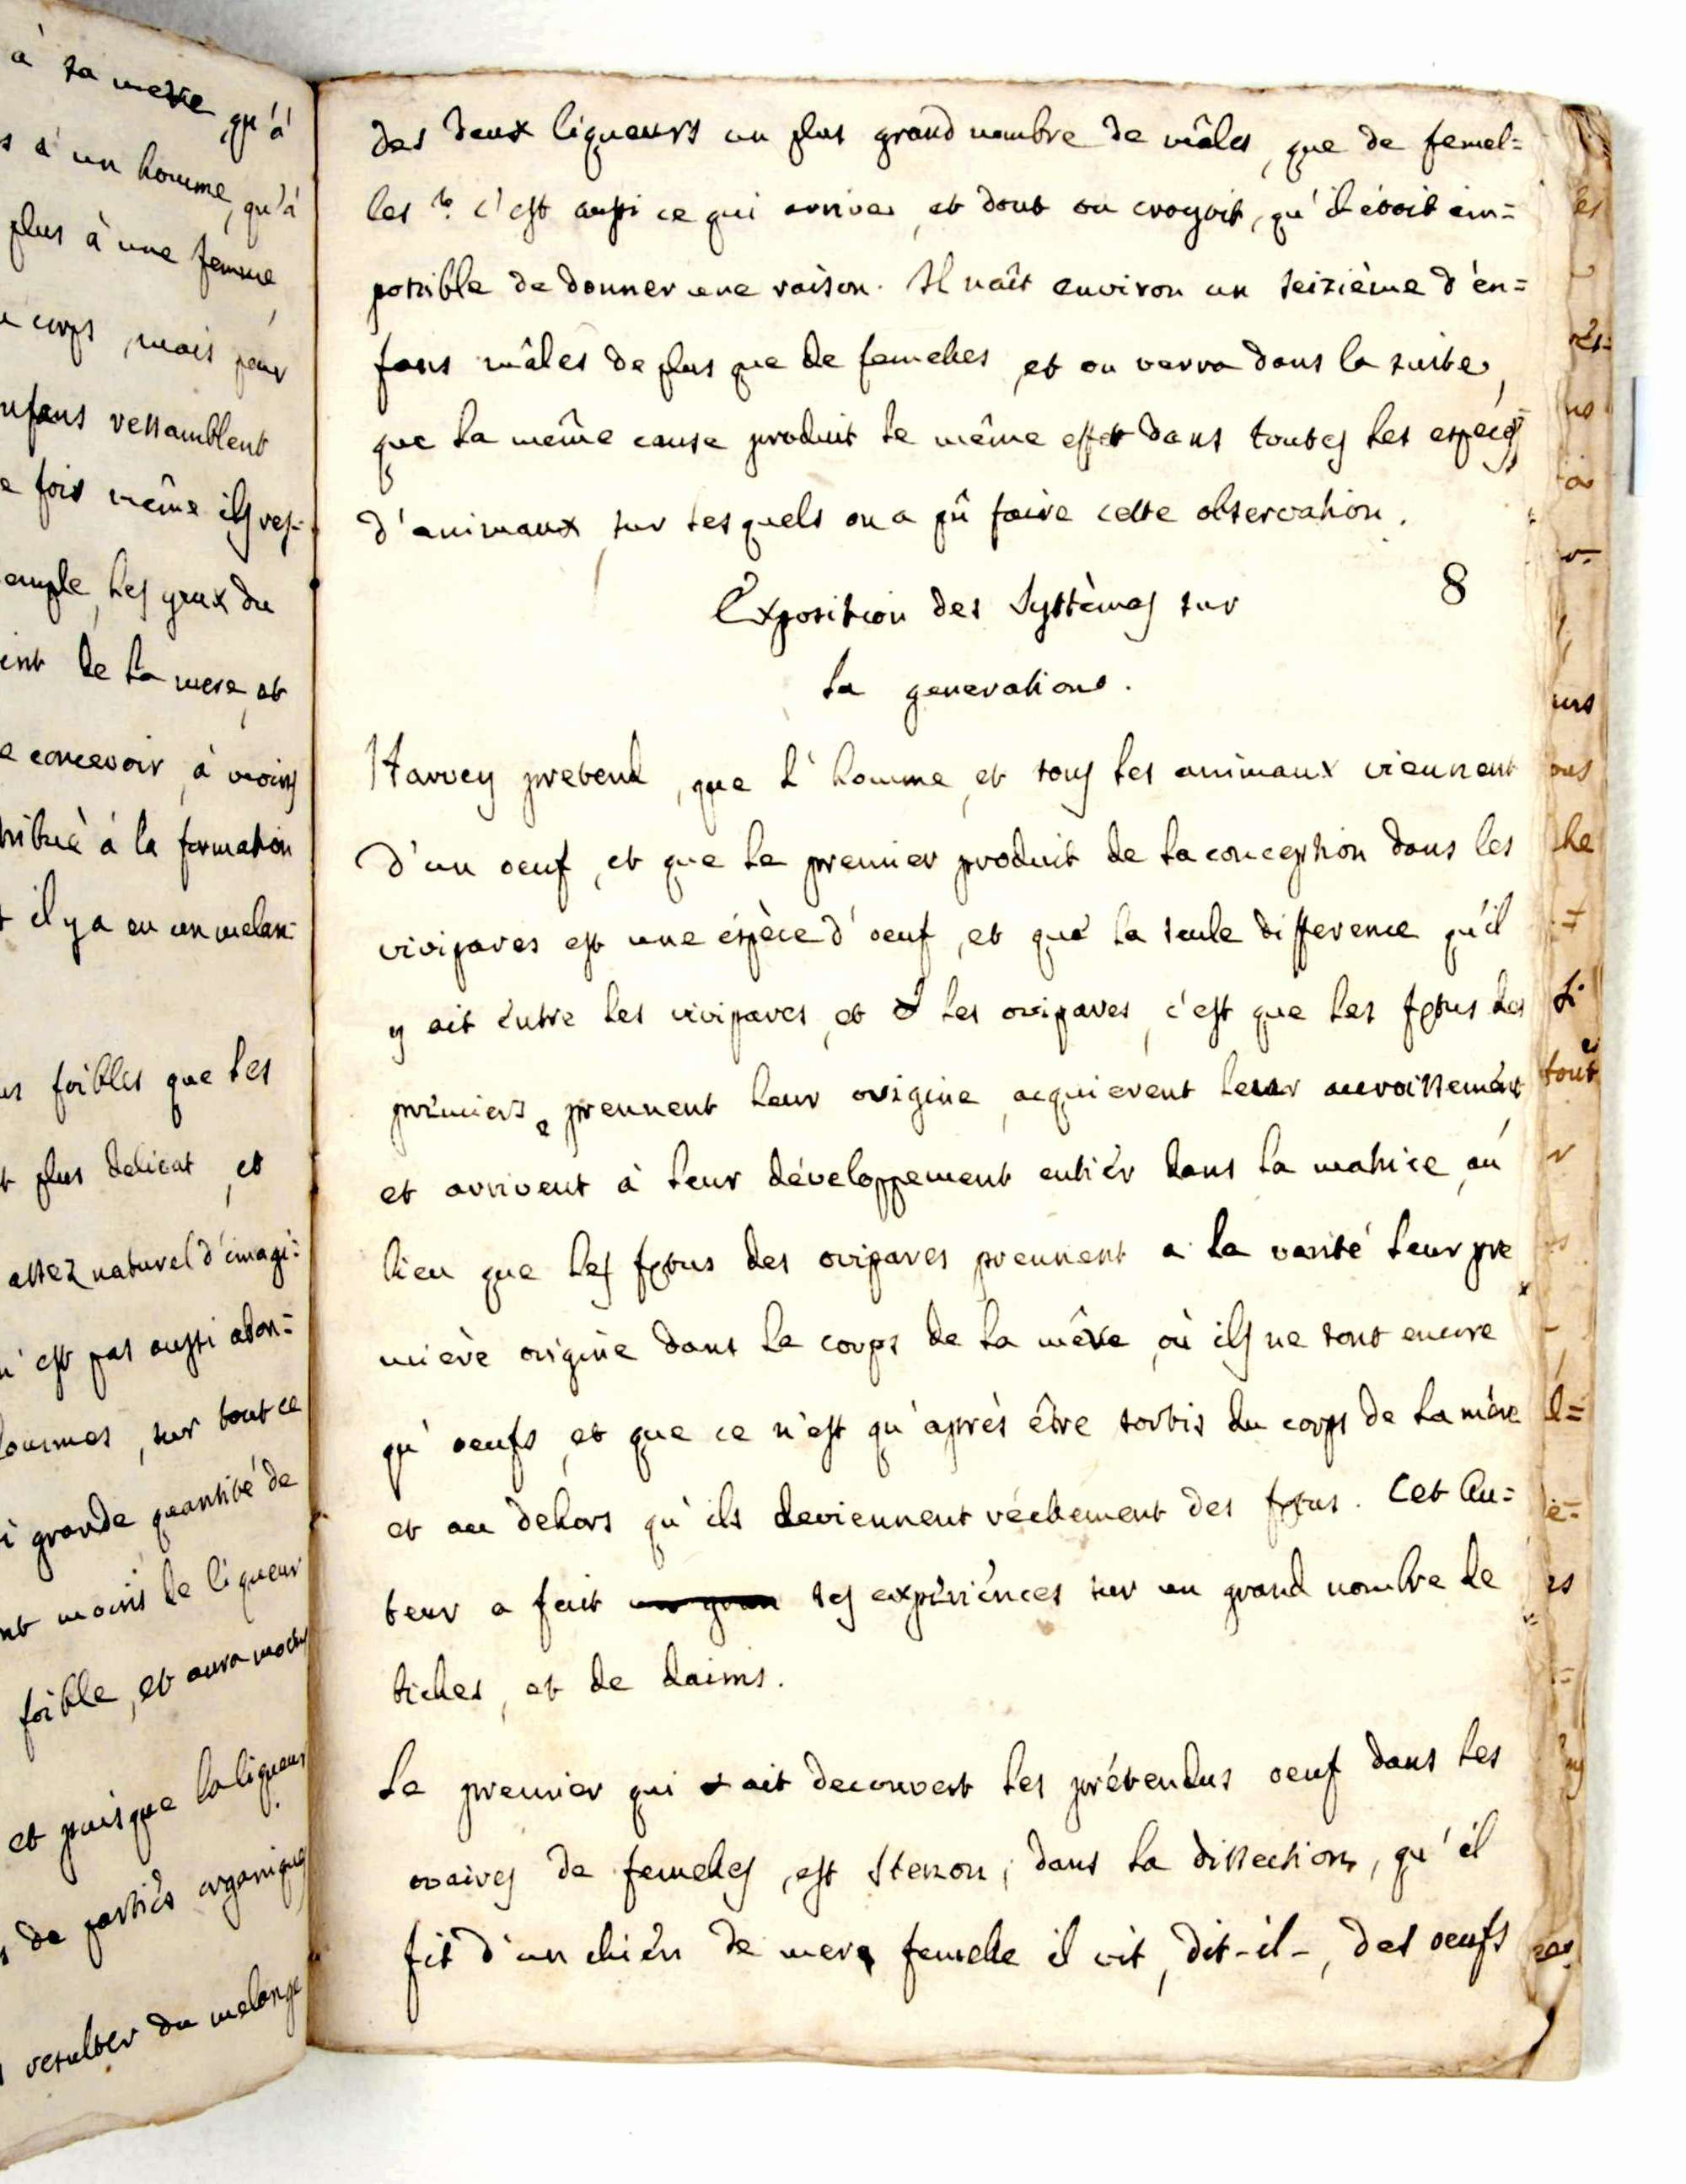 à sa mere qu'à
s à un homme, qu'à
plus à une femme,
corps, mais pour
nfans ressamblent
e fois même ilʃ reʃ-
emple, leʃ yeux du
ent de la mere, et
e concevoir, à moinʃ
tribué à la formation
il y a eu un mélan-
foibles que les
t plus delicat, et
assez naturel d'imagi-
n'est pas aussi abon=
hommes, sur tout ce
i grande quantité de
nt moins de liqueur
foible, et aura moins
et puisque la liqueur
s de parties organiques
resulter du melange
des deux liqueurs un plus grand nombre de mâles, que de femel=
les. c'est aussi ce qui arrive, et dont on croyoit, qu'il étoit im=
possible de donner une raison. Il naît environ un seizième d'en=
fans mâles de plus que de femelles, et on verra dans la suite,
que la même cause produit le même effet dans toutes les espèces
d'animaux, sur lesquels on a pû faire cette observation.
8
Exposition des Systèmes sur
la generation.
Harvey pretend, que l'homme, et tous les animaux viennent
d'un oeuf, et que le premier produit de la conception dans les
vivipares est une éspèce d'oeuf, et que la seule difference qu'il
y ait entre les vivipares, et les ovipares, c'est que les fetus des
premiers prennent leur origine, acquierent leur accroissement
et arrivent à leur développement entiér dans la matrice, au
lieu que les fetus des ovipares prennent a la verité leur pre
mière origine dans le corps de la mère, où ils ne sont encore
qu'oeufs, et que ce n'est qu'aprés être sortis du corps de la mère
et au dehors qu'ils deviennent réellement des fetus. Cet Au=
teur a fait un gran ses expériences sur un grand nombre de
biches, et de daims.
Le premier qui ait decouvert les prétendus oeuf dans les
ovaires de femelles, est Stenon; dans la dissection, qu'il
fit d'un chién de mere femelle il vit, dit-il-, des oeufs